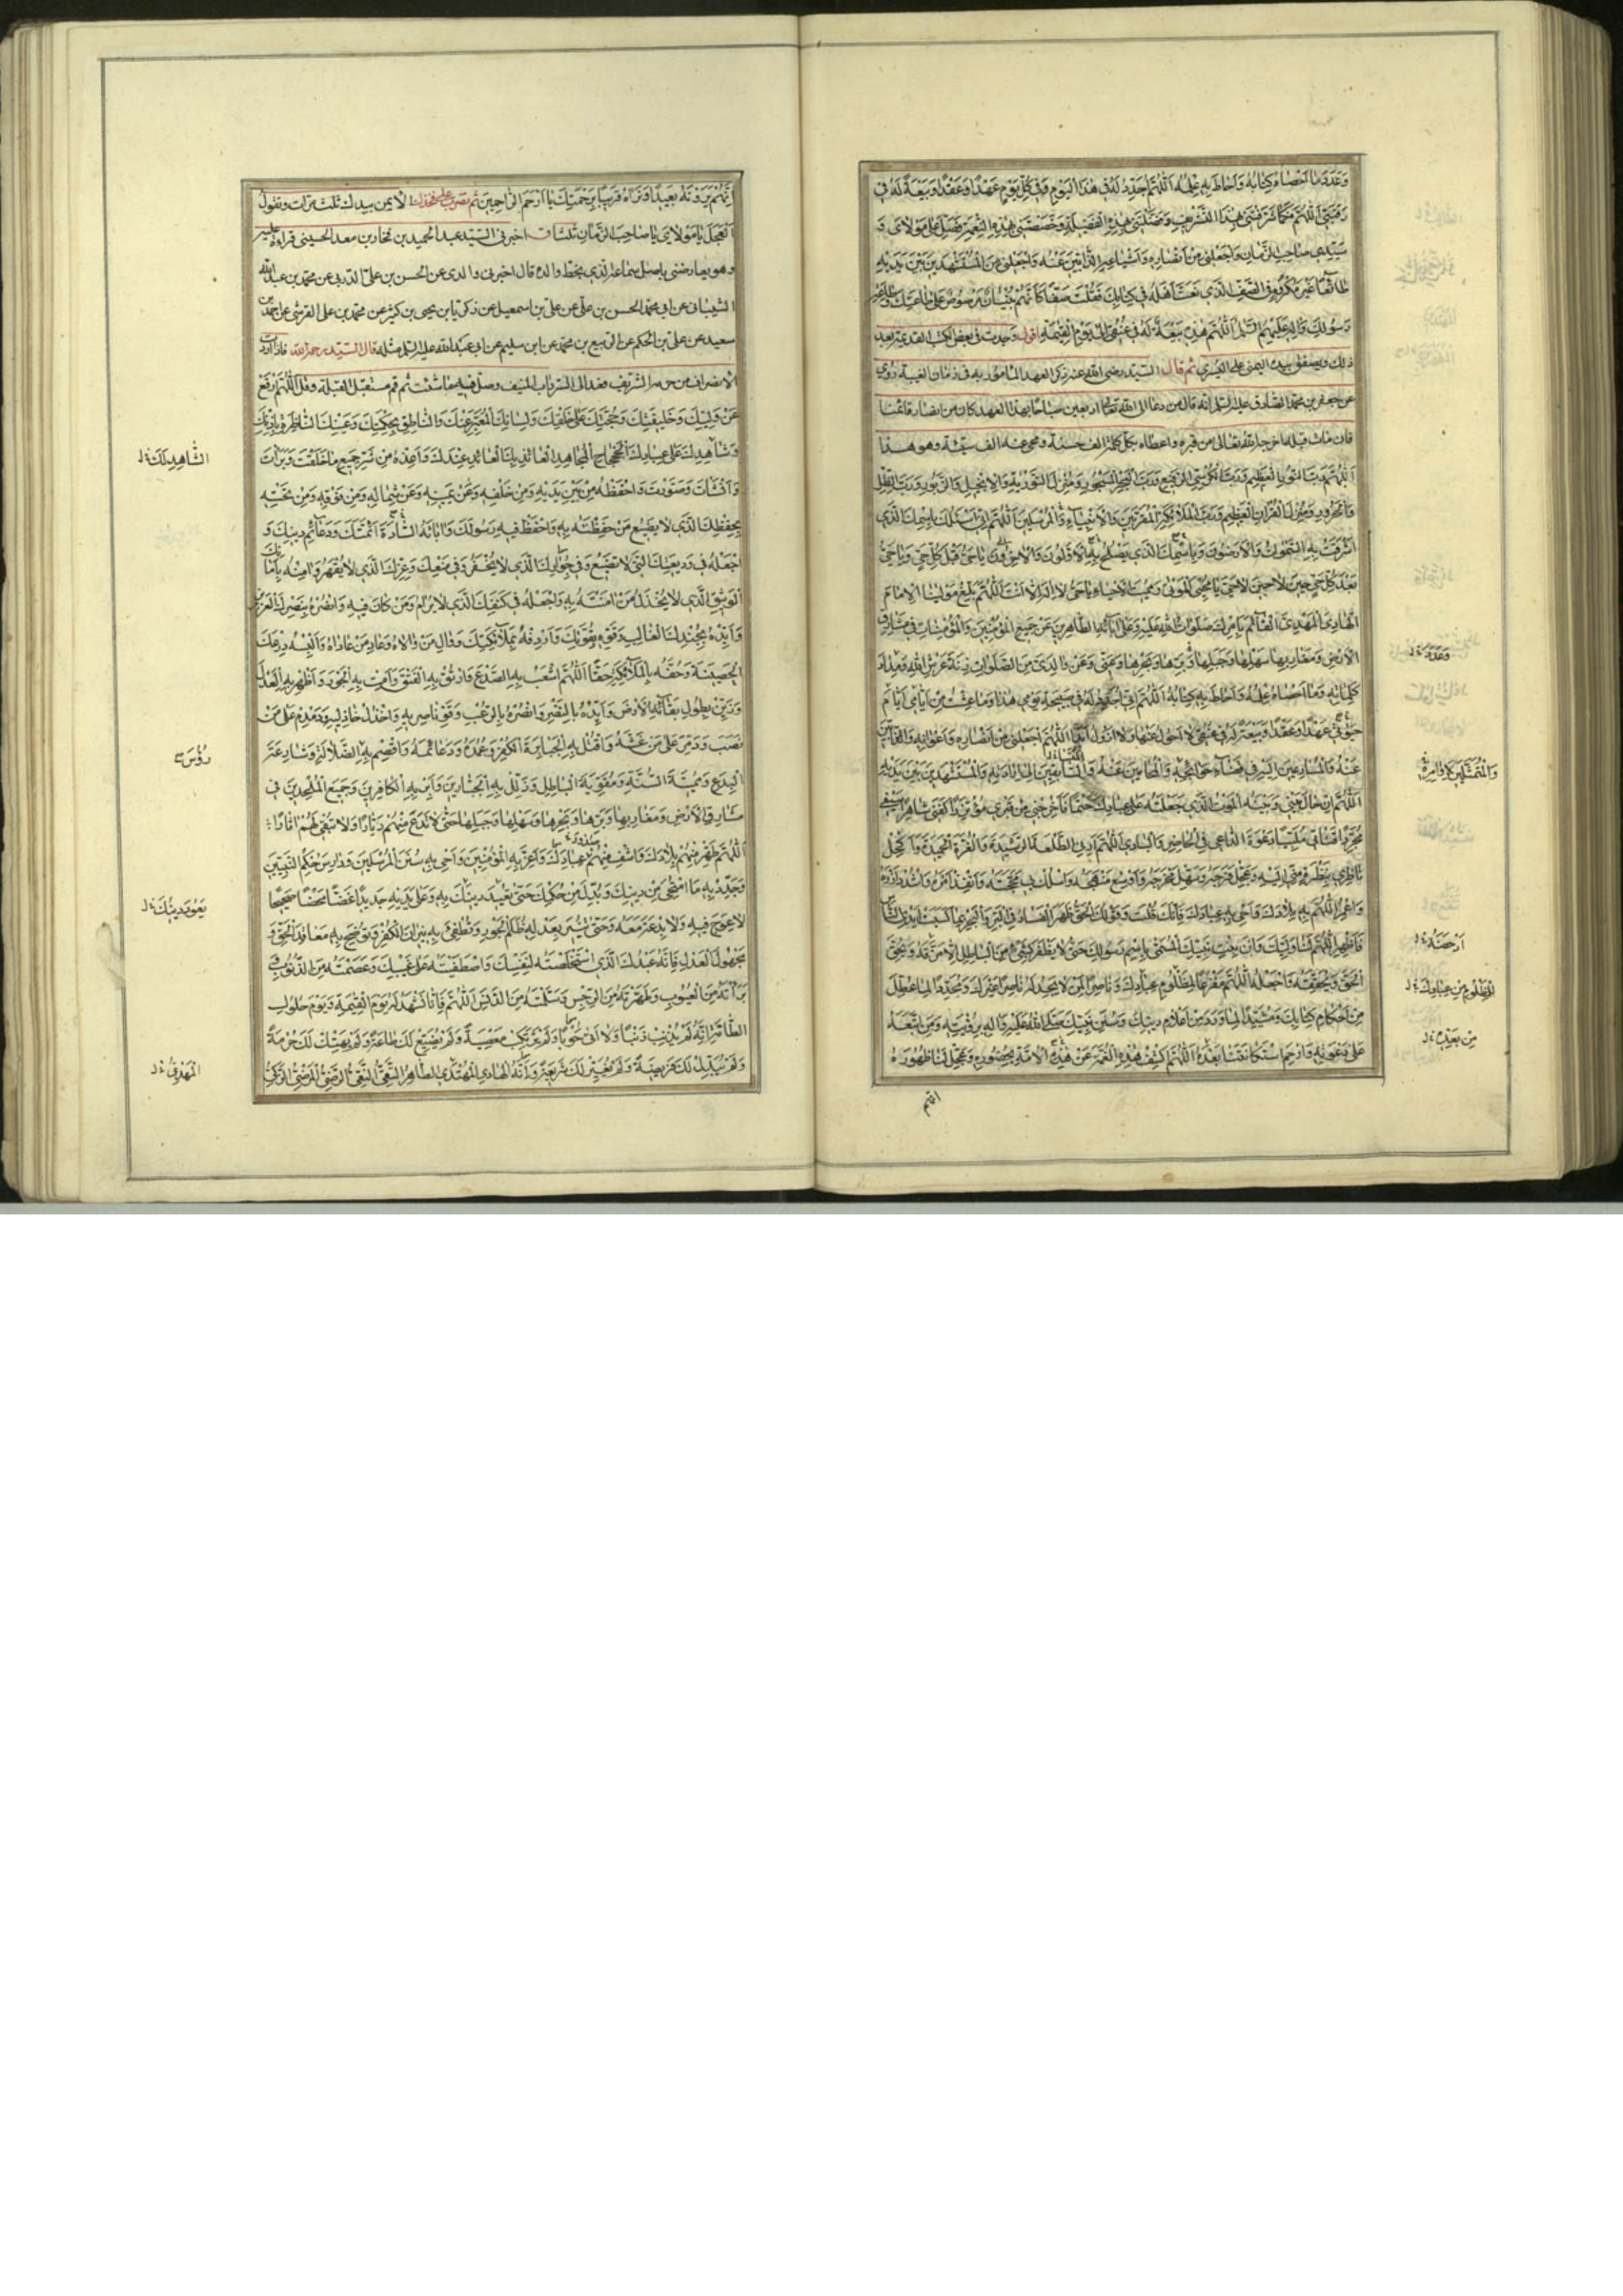 وَعَدَدَ مَا اَحْصَاهُ كِتَابُهُ وَاَحَاطَ بِهِ عِلْمُهُ اَللّٰهُمَّ اُجَدِّدُ لَهُ فِي هٰذَا الْيَوْمِ وَفِي كُلِّ يَوْمٍ عَهْدًا وَعَقْدًا وَبَيْعَةً لَهُ فِي
رَقَبَتِي اَللّٰهُمَّ كَمَا شَرَّفْتَنِي بِهٰذَا التَّشْرِيفِ وَفَضَّلْتَنِي بِهٰذِهِ الْفَضِيلَةِ وَخَصَصْتَنِي بِهٰذِهِ النِّعْمَةِ فَصَلِّ عَلٰى مَوْلَايَ وَ
سَيِّدِي صَاحِبِ الزَّمَانِ وَاجْعَلْنِي مِنْ اَنْصَارِهِ وَاَشْيَاعِهِ الذَّابِّينَ عَنْهُ وَاجْعَلْنِي مِنَ الْمُسْتَشْهَدِينَ بَيْنَ يَدَيْهِ
طَائِعًا غَيْرَ مُكْرَهٍ فِي الصَّفِّ الَّذِي نَعَتَّ اَهْلَهُ فِي كِتَابِكَ فَقُلْتَ صَفًّا كَاَنَّهُمْ بُنْيَانٌ مَرْصُوصٌ عَلٰى طَاعَتِكَ وَطَاعَةِ
رَسُولِكَ وَآلِهِ عَلَيْهِمُ السَّلَمُ اَللّٰهُمَّ هٰذِهِ بَيْعَةٌ لَهُ فِي عُنُقِي اِلٰى يَوْمِ الْقِيٰمَةِ اقول وجدت في بعض الكتب القديمة بعد
ذلك ويصفق بيده اليمنى على اليسرى ثم قال السيد رضي الله عنه ذكر العهد المامور به في زمان الغيبة روي
عن جعفر بن محمد الصادق عليه السلم انه قال من دعا الى الله تعالى اربعين صباحا بهذا العهد كان من انصار قائمنا
فان مات قبله اخرجه الله تعالى من قبره واعطاه بكل كلمة الف حسنة ومحى عنه الف سيئة وهو هذا
اَللّٰهُمَّ رَبَّ النُّورِ الْعَظِيمِ وَرَبَّ الْكُرْسِيِّ الرَّفِيعِ وَرَبَّ الْبَحْرِ الْمَسْجُورِ وَمُنْزِلَ التَّوْرٰيةِ وَالْاِنْجِيلِ وَالزَّبُورِ وَرَبَّ الظِّلِّ
وَالْحَرُورِ وَمُنْزِلَ الْقُرْاٰنِ الْعَظِيمِ وَرَبَّ الْمَلَائِكَةِ الْمُقَرَّبِينَ وَالْاَنْبِيَاءِ وَالْمُرْسَلِينَ اَللّٰهُمَّ اِنِّي اَسْئَلُكَ بِاسْمِكَ الَّذِي
اَشْرَقَتْ بِهِ السَّمٰوَاتُ وَالْاَرَضُونَ وَبِاسْمِكَ الَّذِي يَصْلُحُ بِهِ الْاَوَّلُونَ وَالْآخِرُونَ يَا حَيُّ قَبْلَ كُلِّ حَيٍّ وَيَا حَيُّ
بَعْدَ كُلِّ حَيٍّ حِينَ لَا حَيَّ يَا مُحْيِيَ الْمَوْتٰى وَمُمِيتَ الْاَحْيَاءِ يَا حَيُّ لَا اِلٰهَ اِلَّا اَنْتَ اَللّٰهُمَّ بَلِّغْ مَوْلٰينَا الْاِمَامَ
الْهَادِيَ الْمَهْدِيَّ الْقَائِمَ بِاَمْرِكَ صَلَوَاتُ اللهِ عَلَيْهِ وَعَلٰى آبَائِهِ الطَّاهِرِينَ عَنْ جَمِيعِ الْمُؤْمِنِينَ وَالْمُؤْمِنَاتِ فِي مَشَارِقِ
الْاَرْضِ وَمَغَارِبِهَا سَهْلِهَا وَجَبَلِهَا وَبَرِّهَا وَبَحْرِهَا وَعَنِّي وَعَنْ وَالِدَيَّ مِنَ الصَّلَوَاتِ زِنَةَ عَرْشِ اللهِ وَمِدَادَ
كَلِمَاتِهِ وَمَا اَحْصَاهُ عِلْمُهُ وَاَحَاطَ بِهِ كِتَابُهُ اَللّٰهُمَّ اِنِّي اُجَدِّدُ لَهُ فِي صَبِيحَةِ يَوْمِي هٰذَا وَمَا عِشْتُ مِنْ اَيَّامِي اَيَّامَ
حَيٰوتِي عَهْدًا وَعَقْدًا وَبَيْعَةً لَهُ فِي عُنُقِي لَا اَحُولُ عَنْهَا وَلَا اَزُولُ اَبَدًا اَللّٰهُمَّ اجْعَلْنِي مِنْ اَنْصَارِهِ وَاَعْوَانِهِ وَالذَّابِّينَ
عَنْهُ وَالْمُسَارِعِينَ اِلَيْهِ فِي قَضَاءِ حَوَائِجِهِ وَالْمُحَامِينَ عَنْهُ وَالسَّابِقِينَ اِلٰى اِرَادَتِهِ وَالْمُسْتَشْهَدِينَ بَيْنَ يَدَيْهِ
اَللّٰهُمَّ اِنْ حَالَ بَيْنِي وَبَيْنَهُ الْمَوْتُ الَّذِي جَعَلْتَهُ عَلٰى عِبَادِكَ حَتْمًا فَاَخْرِجْنِي مِنْ قَبْرِي مُؤْتَزِرًا كَفَنِي شَاهِرًا سَيْفِي
مُجَرِّدًا قَنَاتِي مُلَبِّيًا دَعْوَةَ الدَّاعِي فِي الْحَاضِرِ وَالْبَادِي اَللّٰهُمَّ اَرِنِي الطَّلْعَةَ الرَّشِيدَةَ وَالْغُرَّةَ الْحَمِيدَةَ وَاكْحُلْ
نَاظِرِي بِنَظْرَةٍ مِنِّي اِلَيْهِ وَعَجِّلْ فَرَجَهُ وَسَهِّلْ مَخْرَجَهُ وَاَوْسِعْ مَنْهَجَهُ وَاسْلُكْ بِي مَحَجَّتَهُ وَانْفِذْ اَمْرَهُ وَاشْدُدْ اَزْرَهُ
وَاعْمُرِ اللّٰهُمَّ بِهِ بِلَادَكَ وَاَحْيِ بِهِ عِبَادَكَ فَاِنَّكَ قُلْتَ وَقَوْلُكَ الْحَقُّ ظَهَرَ الْفَسَادُ فِي الْبَرِّ وَالْبَحْرِ بِمَا كَسَبَتْ اَيْدِي النَّاسِ
فَاَظْهِرِ اللّٰهُمَّ لَنَا وَلِيَّكَ وَابْنَ بِنْتِ نَبِيِّكَ الْمُسَمّٰى بِاسْمِ رَسُولِكَ حَتّٰى لَا يَظْفَرَ بِشَيْءٍ مِنَ الْبَاطِلِ اِلَّا مَزَّقَهُ وَيُحِقَّ
الْحَقَّ وَيُحَقِّقَهُ وَاجْعَلْهُ اللّٰهُمَّ مَفْزَعًا لِمَظْلُومِ عِبَادِكَ وَنَاصِرًا لِمَنْ لَا يَجِدُ لَهُ نَاصِرًا غَيْرَكَ وَمُجَدِّدًا لِمَا عُطِّلَ
مِنْ اَحْكَامِ كِتَابِكَ وَمُشَيِّدًا لِمَا وَرَدَ مِنْ اَعْلَامِ دِينِكَ وَسُنَنِ نَبِيِّكَ صَلَّى اللهُ عَلَيْهِ وَآلِهِ بِرُؤْيَتِهِ وَمَنْ تَبِعَهُ
عَلٰى دَعْوَتِهِ وَارْحَمِ اسْتِكَانَتَنَا بَعْدَهُ اَللّٰهُمَّ اكْشِفْ هٰذِهِ الْغُمَّةَ عَنْ هٰذِهِ الْاُمَّةِ بِحُضُورِهِ وَعَجِّلْ لَنَا ظُهُورَهُ
انهم
وَعَدَدَ
مِنْ بَعْدِهِ
اِنَّهُمْ يَرَوْنَهُ بَعِيدًا وَنَرَاهُ قَرِيبًا بِرَحْمَتِكَ يَا اَرْحَمَ الرَّاحِمِينَ ثم تضرب على فخذك الايمن بيدك ثلث مرات وتقول
اَلْعَجَلَ يَا مَوْلَايَ يَا صَاحِبَ الزَّمَانِ ثلثا ق اخبرني السيد عبد الحميد بن فخار بن معد الحسيني قراءة عليه
وهو يعارضني باصل سماعه الذي بخط والده قال اخبرني والدي عن الحسن بن علي الدربي عن محمد بن عبد الله
الشيباني عن ابي محمد الحسن بن علي عن علي بن اسمعيل عن زكريا بن يحيى بن كثير عن محمد بن علي القرشي عن احمد بن
سعيد عن علي بن الحكم عن الربيع بن محمد عن ابن سليم عن ابي عبد الله عليه السلم مثله قال السيد رحمه الله فاذا اردت
الانصراف من حرمه الشريف فعد الى السرداب المنيف وصل فيه ما شئت ثم قم مستقبل القبلة وقل اَللّٰهُمَّ ادْفَعْ
عَنْ وَلِيِّكَ وَخَلِيفَتِكَ وَحُجَّتِكَ عَلٰى خَلْقِكَ وَلِسَانِكَ الْمُعَبِّرِ عَنْكَ وَالنَّاطِقِ بِحِكْمَتِكَ وَعَيْنِكَ النَّاظِرَةِ بِاِذْنِكَ
وَشَاهِدِكَ عَلٰى عِبَادِكَ الْجَحْجَاحِ الْمُجَاهِدِ الْعَائِذِ بِكَ الْعَابِدِ عِنْدَكَ وَاَعِذْهُ مِنْ شَرِّ جَمِيعِ مَا خَلَقْتَ وَبَرَأْتَ
وَاَنْشَأْتَ وَصَوَّرْتَ وَاحْفَظْهُ مِنْ بَيْنِ يَدَيْهِ وَمِنْ خَلْفِهِ وَعَنْ يَمِينِهِ وَعَنْ شِمَالِهِ وَمِنْ فَوْقِهِ وَمِنْ تَحْتِهِ
بِحِفْظِكَ الَّذِي لَا يَضِيعُ مَنْ حَفِظْتَهُ بِهِ وَاحْفَظْ فِيهِ رَسُولَكَ وَآبَائَهُ السَّادَةَ اَئِمَّتَكَ وَدَعَائِمَ دِينِكَ وَ
اجْعَلْهُ فِي وَدِيعَتِكَ الَّتِي لَا تَضِيعُ وَفِي جِوَارِكَ الَّذِي لَا يُخْفَرُ وَفِي مَنْعِكَ وَعِزِّكَ الَّذِي لَا يُقْهَرُ وَآمِنْهُ بِاَمَانِكَ
الْوَثِيقِ الَّذِي لَا يُخْذَلُ مَنْ آمَنْتَهُ بِهِ وَاجْعَلْهُ فِي كَنَفِكَ الَّذِي لَا يُرَامُ مَنْ كَانَ فِيهِ وَانْصُرْهُ بِنَصْرِكَ الْعَزِيزِ
وَاَيِّدْهُ بِجُنْدِكَ الْغَالِبِ وَقَوِّهِ بِقُوَّتِكَ وَاَرْدِفْهُ بِمَلَائِكَتِكَ وَوَالِ مَنْ وَالَاهُ وَعَادِ مَنْ عَادَاهُ وَاَلْبِسْهُ دِرْعَكَ
الْحَصِينَةَ وَحُفَّهُ بِالْمَلَائِكَةِ حَفًّا اَللّٰهُمَّ اشْعَبْ بِهِ الصَّدْعَ وَارْتُقْ بِهِ الْفَتْقَ وَاَمِتْ بِهِ الْجَوْرَ وَاَظْهِرْ بِهِ الْعَدْلَ
وَزَيِّنْ بِطُولِ بَقَائِهِ الْاَرْضَ وَاَيِّدْهُ بِالنَّصْرِ وَانْصُرْهُ بِالرُّعْبِ وَقَوِّ نَاصِرِيهِ وَاخْذُلْ خَاذِلِيهِ وَدَمْدِمْ عَلٰى مَنْ
نَصَبَ وَدَمِّرْ عَلٰى مَنْ غَشَّهُ وَاقْتُلْ بِهِ الْجَبَابِرَةَ الْكُفْرِ وَعُمَدَهُ وَدَعَائِمَهُ وَاقْصِمْ بِهِ الضَّلَالَةِ وَشَارِعَةَ
الْبِدَعِ وَمُمِيتَةَ السُّنَّةِ وَمُقَوِّيَةَ الْبَاطِلِ وَذَلِّلْ بِهِ الْجَبَّارِينَ وَاَبِرْ بِهِ الْكَافِرِينَ وَجَمِيعَ الْمُلْحِدِينَ فِي
مَشَارِقِ الْاَرْضِ وَمَغَارِبِهَا وَبَرِّهَا وَبَحْرِهَا وَسَهْلِهَا وَجَبَلِهَا حَتّٰى لَا تَدَعَ مِنْهُمْ دَيَّارًا وَلَا تُبْقِيَ لَهُمْ آثَارًا
اَللّٰهُمَّ طَهِّرْ مِنْهُمْ بِلَادَكَ وَاشْفِ مِنْهُمْ عِبَادَكَ وَاَعِزَّ بِهِ الْمُؤْمِنِينَ وَاَحْيِ بِهِ سُنَنَ الْمُرْسَلِينَ وَدَارِسَ حِكَمِ النَّبِيِّينَ
وَجَدِّدْ بِهِ مَا امْتَحٰى مِنْ دِينِكَ وَبُدِّلَ مِنْ حُكْمِكَ حَتّٰى تُعِيدَ دِينَكَ بِهِ وَعَلٰى يَدَيْهِ جَدِيدًا غَضًّا مَحْضًا صَحِيحًا
لَا عِوَجَ فِيهِ وَلَا بِدْعَةَ مَعَهُ وَحَتّٰى تُنِيرَ بِعَدْلِهِ ظُلَمَ الْجَوْرِ وَتُطْفِئَ بِهِ نِيرَانَ الْكُفْرِ وَتُوضِحَ بِهِ مَعَاقِدَ الْحَقِّ وَ
مَجْهُولَ الْعَدْلِ فَاِنَّهُ عَبْدُكَ الَّذِي اسْتَخْلَصْتَهُ لِنَفْسِكَ وَاصْطَفَيْتَهُ عَلٰى غَيْبِكَ وَعَصَمْتَهُ مِنَ الذُّنُوبِ
بَرَّأْتَهُ مِنَ الْعُيُوبِ وَطَهَّرْتَهُ مِنَ الرِّجْسِ وَسَلَّمْتَهُ مِنَ الدَّنَسِ اَللّٰهُمَّ فَاِنَّا نَشْهَدُ لَهُ يَوْمَ الْقِيٰمَةِ وَيَوْمَ حُلُولِ
الطَّامَّةِ اِنَّهُ لَمْ يُذْنِبْ ذَنْبًا وَلَا اَتٰى حُوبًا وَلَمْ يَرْتَكِبْ مَعْصِيَةً وَلَمْ يُضَيِّعْ لَكَ طَاعَةً وَلَمْ يَهْتِكْ لَكَ حُرْمَةً
وَلَمْ يُبَدِّلْ لَكَ فَرِيضَةً وَلَمْ يُغَيِّرْ لَكَ شَرِيعَةً وَاَنَّهُ الْهَادِي الْمُهْتَدِي الطَّاهِرُ التَّقِيُّ النَّقِيُّ الرَّضِيُّ الْمَرْضِيُّ الزَّكِيُّ
الشَّاهِدِ لَكَ
رُؤُسَ
يَعُودَ دِينُكَ
الْمَهْدِيُّ